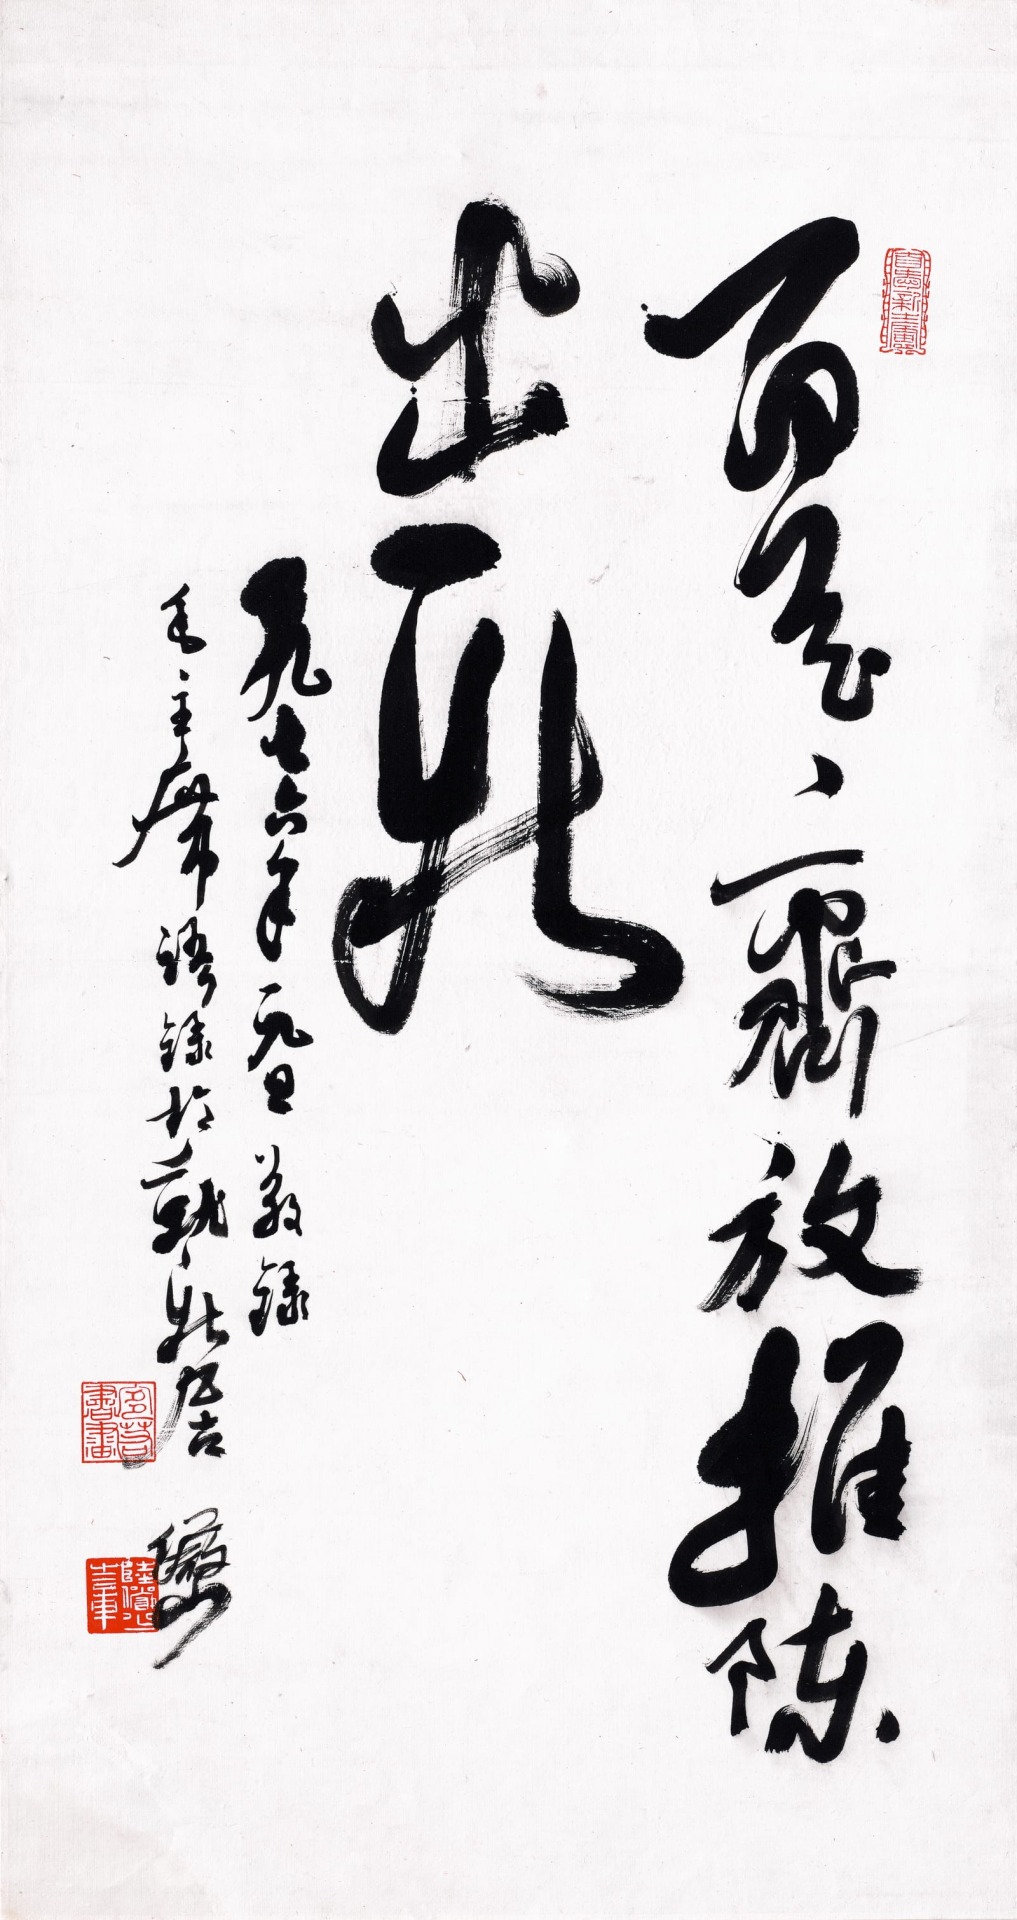 百花齊放推陳
出新
一九七六年元旦敬錄
毛主席語錄於
陸儼